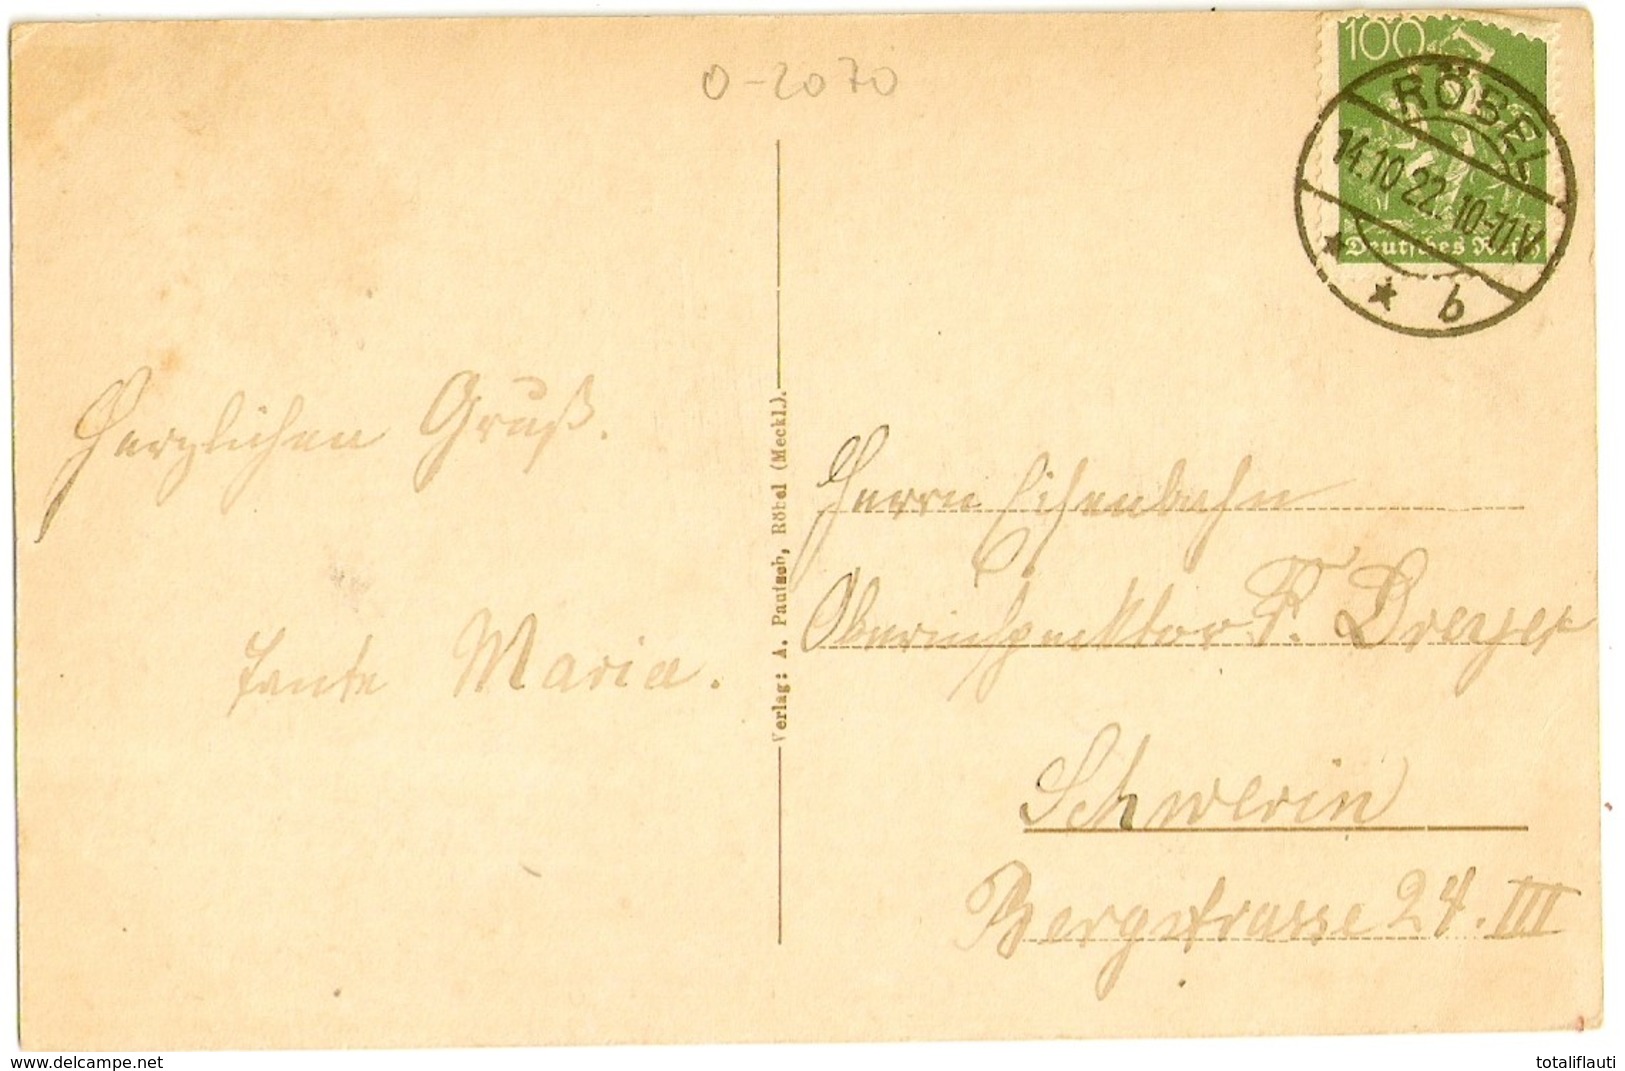 O-2070
100
Deutsches Reich
RÖBEL
14.10.22. 10-11 V
b
Herzlichen Gruß.
Tante Maria.
Verlag: A. Pautsch, Röbel (Meckl.).
Herrn Eisenbahn
Oberinspecktor F. Dreyer
Schwerin
Bergstrasse 24. III
www.delcampe.net
totaliflauti